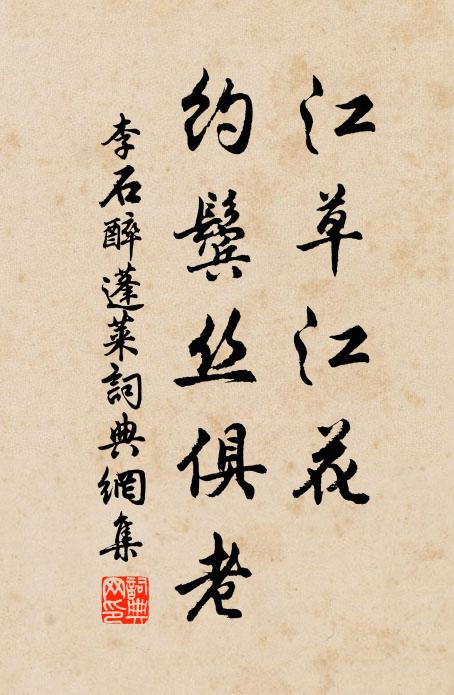 江草江花
约鬓丝俱老
李石醉蓬莱詞典網集
詞典网印